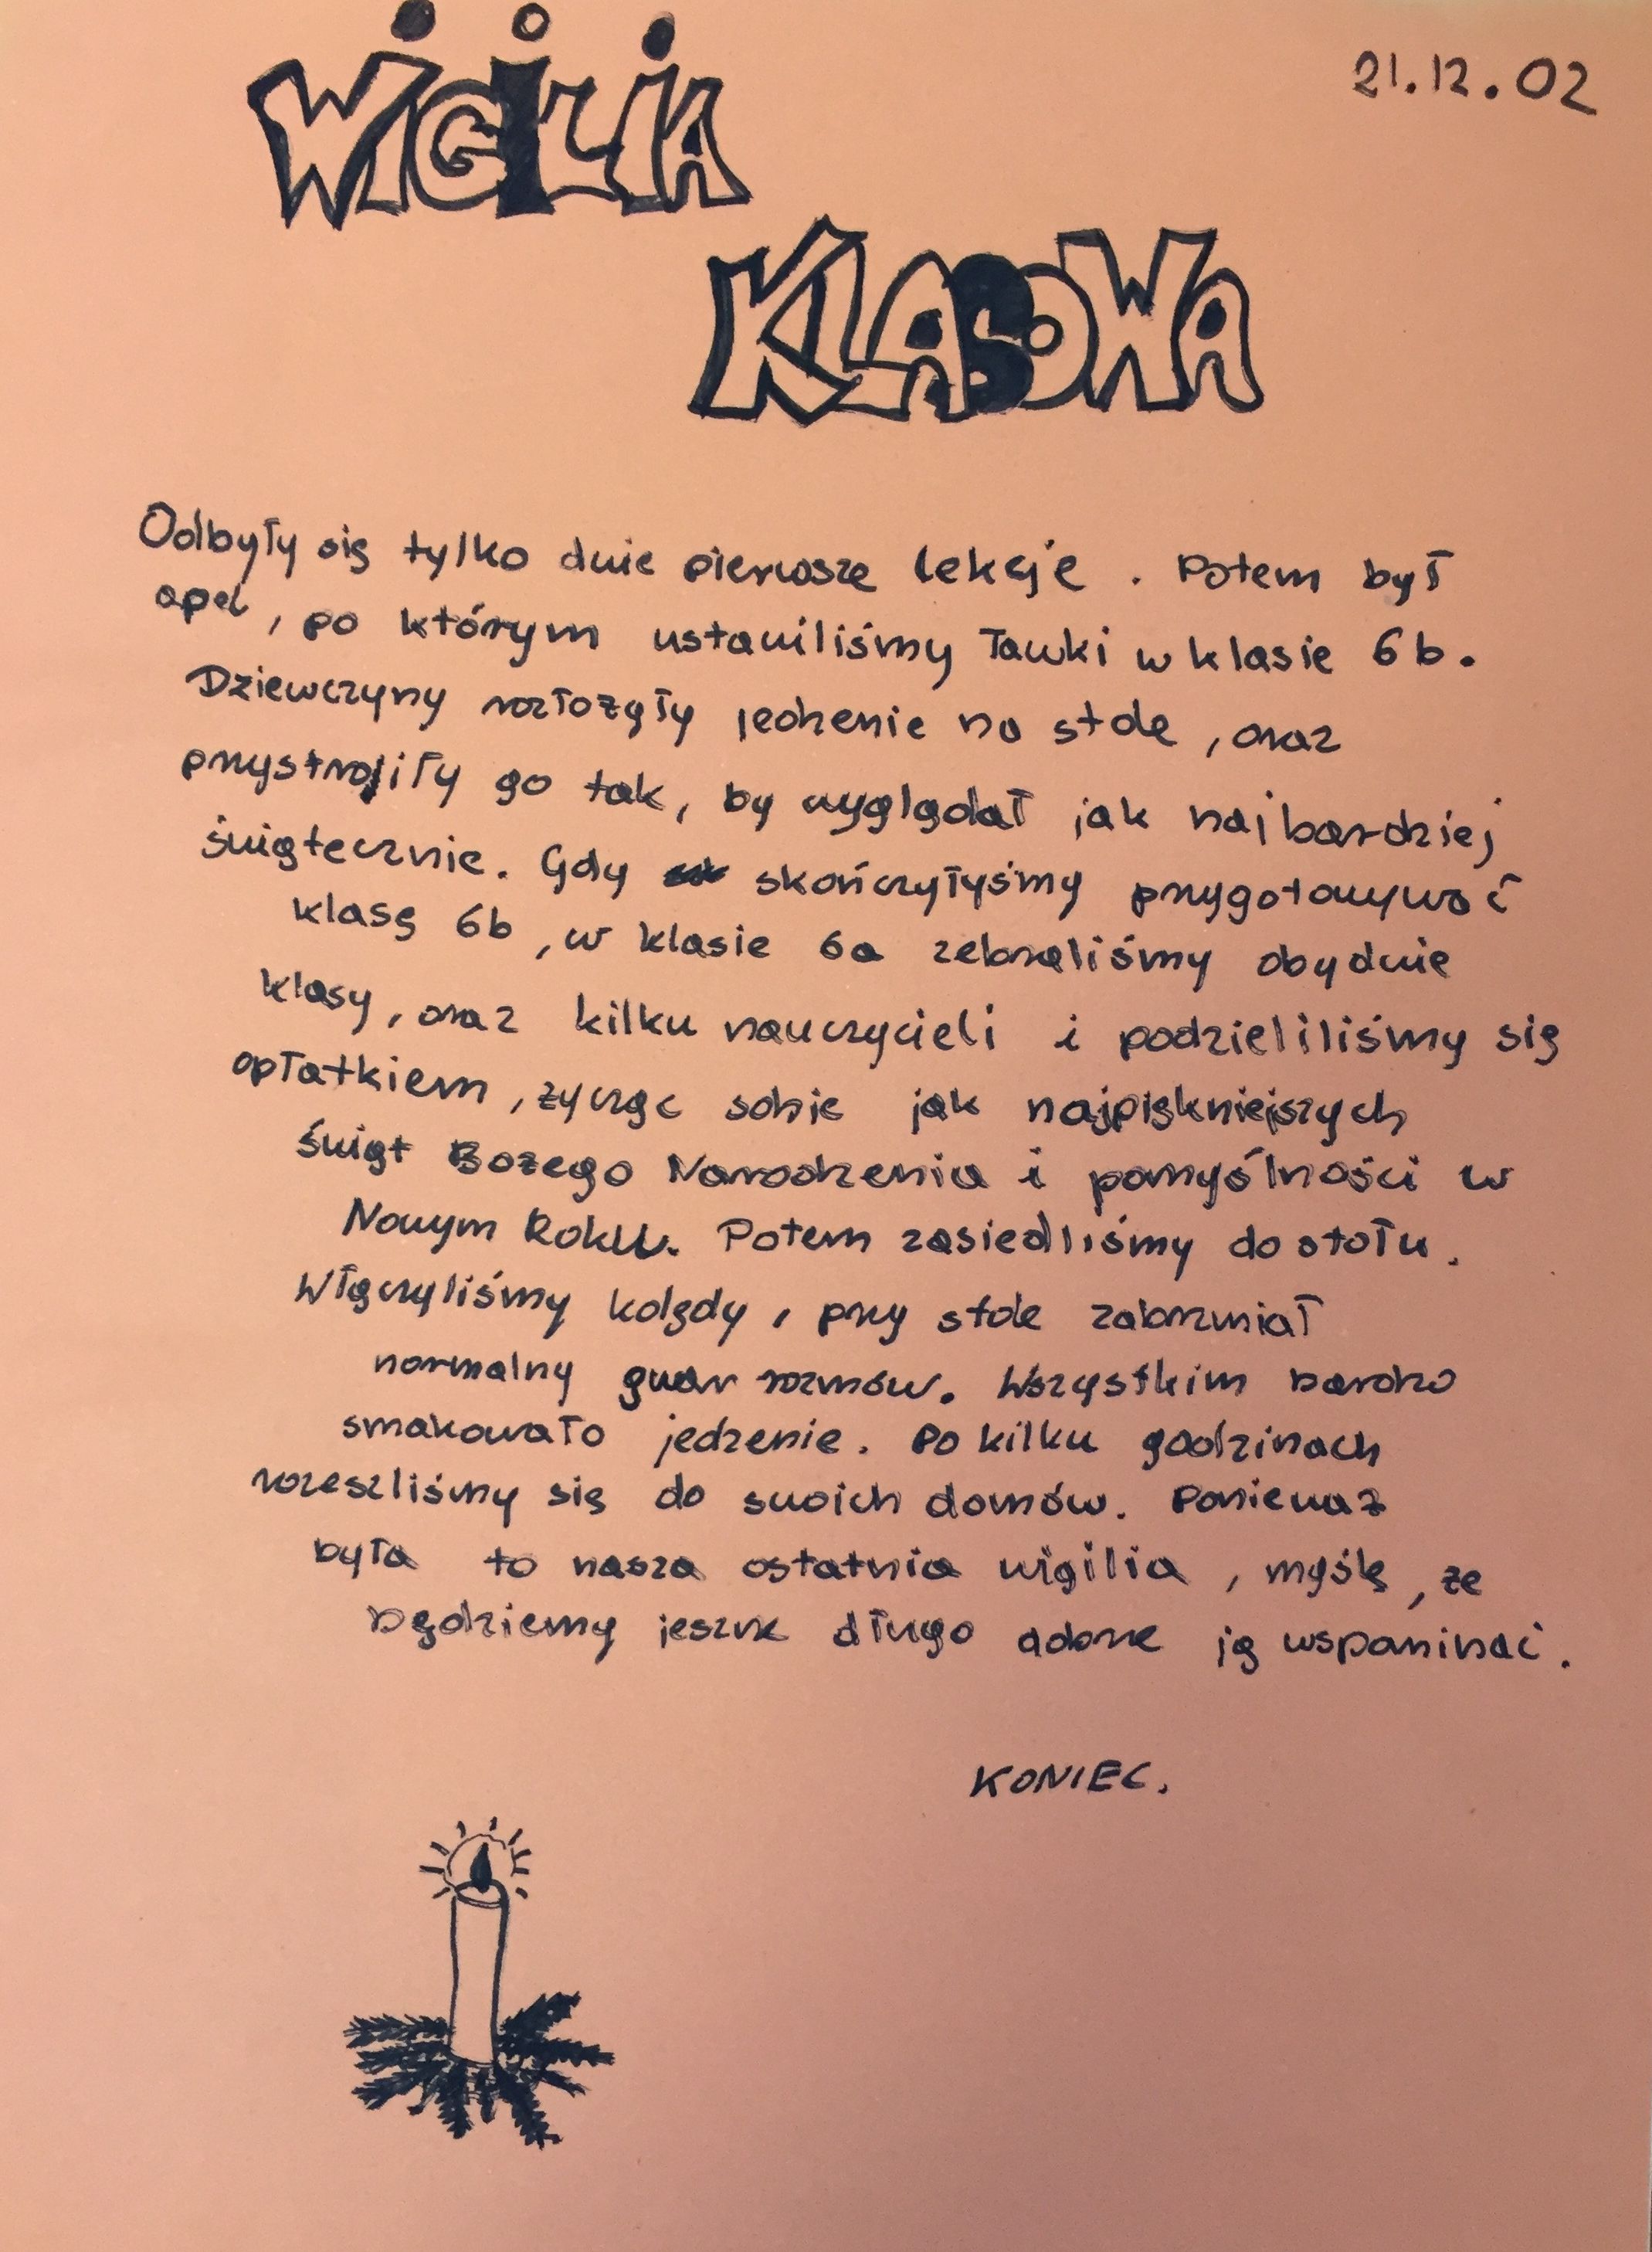 21.12.02
WIGILIA
KLASOWA
Odbyły się tylko dwie pierwsze lekcje. Potem był
apel, po którym ustawiliśmy ławki w klasie 6b.
Dziewczyny rozłożyły jedzenie na stole, oraz
przystroiły go tak, by wyglądał jak najbardziej
świątecznie. Gdy skończyłyśmy przygotowywać
klasę 6b, w klasie 6a zebraliśmy obydwie
klasy, oraz kilku nauczycieli i podzieliliśmy się
opłatkiem, życząc sobie jak najpiękniejszych
świąt Bożego Narodzenia i pomyślności w
Nowym Roku. Potem zasiedliśmy do stołu.
Włączyliśmy kolędy, przy stole zabrzmiał
normalny gwar rozmów. Wszystkim bardzo
smakowało jedzenie. Po kilku godzinach
rozeszliśmy się do swoich domów. Ponieważ
była to nasza ostatnia wigilia, myślę, że
będziemy jeszcze długo dobrze ją wspominać.
KONIEC.